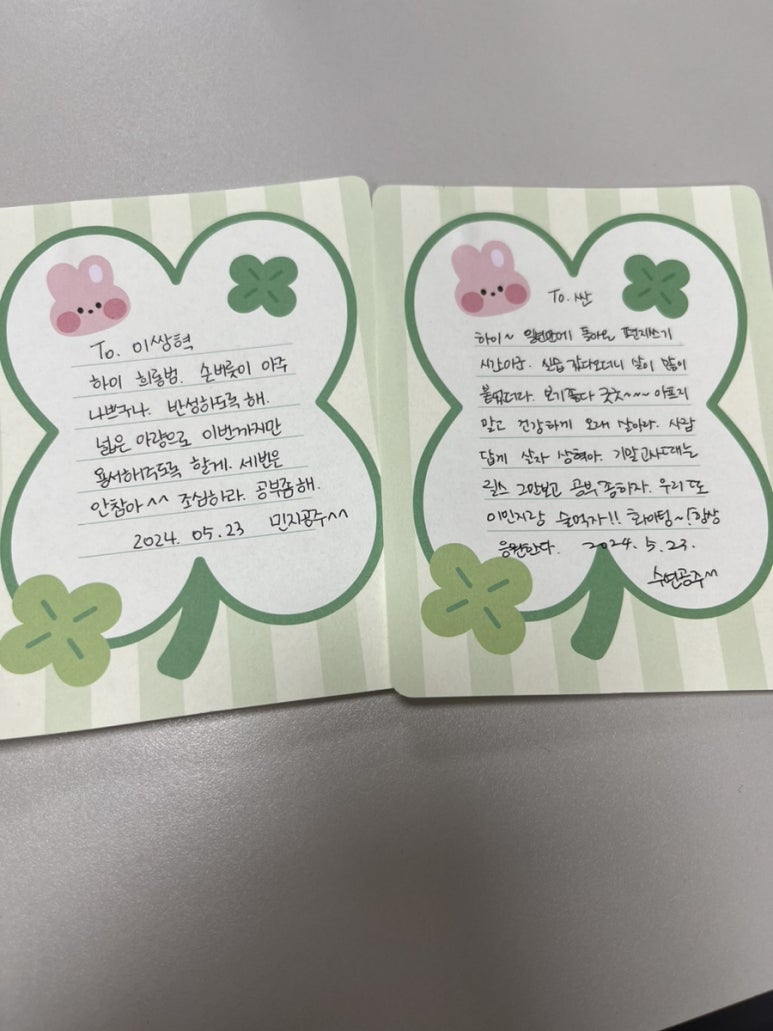 To. 이쌍혁
하이 희롱범. 손버릇이 아주
나쁘구나. 반성하도록 해.
넓은 아량으로 이번까지만
용서해주도록 할게. 세번은
안참아^^ 조심하라. 공부좀해.
2024. 05. 23 민지공주^^
To. 싼
하이~ 일년만에 돌아온 편지쓰기
시간이군. 실습 갔다오더니 살이 많이
붙었더라. 보기좋다 굿굿~~~ 아프지
말고 건강하게 오래 살아라. 사람
답게 살자 상혁아. 기말고사 때는
릴스 그만보고 공부 좀하자. 우리 또
이민지랑 술먹자!! 화이팅~! 항상
응원한다. 2024. 5. 23.
수연공주^^